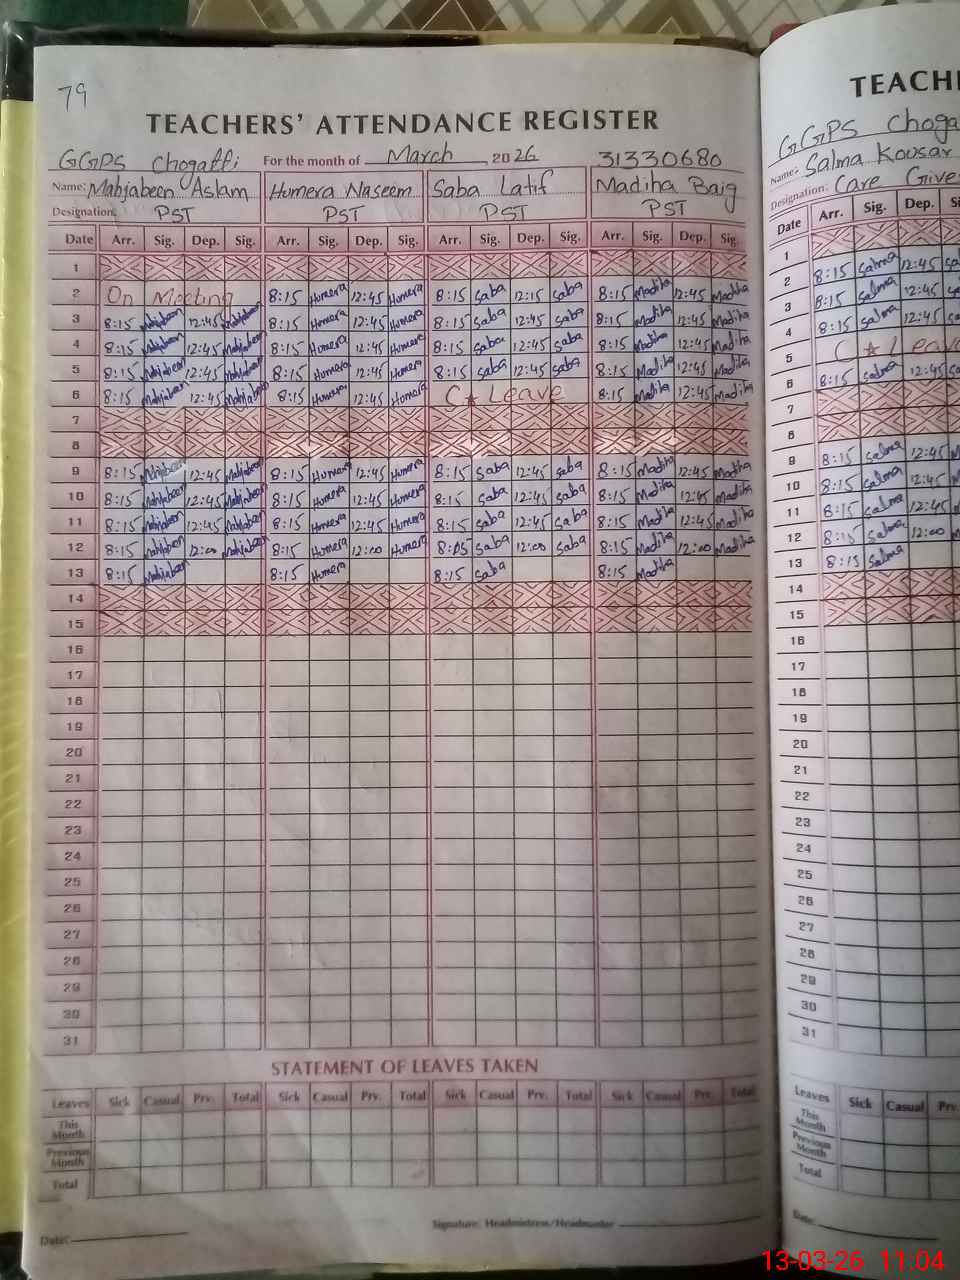 79
TEACHERS' ATTENDANCE REGISTER
GGPS Chogatti For the month of March 2026 31330680
Name: Mahjabeen Aslam Humera Naseem Saba Latif Madiha Baig
Designation: PST PST PST PST
Date Arr. Sig. Dep. Sig. Arr. Sig. Dep. Sig. Arr. Sig. Dep. Sig. Arr. Sig. Dep. Sig.
1
2 On Meeting 8:15 Humera 12:45 Humera 8:15 Saba 12:15 Saba 8:15 Madiha 12:45 Madiha
3 8:15 Mahjabeen 12:45 Mahjabeen 8:15 Humera 12:45 Humera 8:15 Saba 12:45 Saba 8:15 Madiha 12:45 Madiha
4 8:15 Mahjabeen 12:45 Mahjabeen 8:15 Humera 12:45 Humera 8:15 Saba 12:45 Saba 8:15 Madiha 12:45 Madiha
5 8:15 Mahjabeen 12:45 Mahjabeen 8:15 Humera 12:45 Humera 8:15 Saba 12:45 Saba 8:15 Madiha 12:45 Madiha
6 8:15 Mahjabeen 12:45 Mahjabeen 8:15 Humera 12:45 Humera C★Leave 8:15 Madiha 12:45 Madiha
7
8
9 8:15 Mahjabeen 12:45 Mahjabeen 8:15 Humera 12:45 Humera 8:15 Saba 12:45 Saba 8:15 Madiha 12:45 Madiha
10 8:15 Mahjabeen 12:45 Mahjabeen 8:15 Humera 12:45 Humera 8:15 Saba 12:45 Saba 8:15 Madiha 12:45 Madiha
11 8:15 Mahjabeen 12:45 Mahjabeen 8:15 Humera 12:45 Humera 8:15 Saba 12:45 Saba 8:15 Madiha 12:45 Madiha
12 8:15 Mahjabeen 12:00 Mahjabeen 8:15 Humera 12:00 Humera 8:05 Saba 12:00 Saba 8:15 Madiha 12:00 Madiha
13 8:15 Mahjabeen 8:15 Humera 8:15 Saba 8:15 Madiha
14
15
16
17
18
19
20
21
22
23
24
25
26
27
28
29
30
31
STATEMENT OF LEAVES TAKEN
Leaves Sick Casual Prv. Total Sick Casual Prv. Total Sick Casual Prv. Total Sick Casual Prv. Total
This Month
Previous Month
Total
Date: Signature: Headmistress/Headmaster
TEACH
GGPS Choga
Name: Salma Kousar
Designation: Care Give
Date Arr. Sig. Dep. Si
1
2 8:15 Salma 12:45 Sa
3 8:15 Salma 12:45
4 8:15 Salma 12:45
5 C★Leave
6 8:15 Salma 12:45
7
8
9 8:15 Salma 12:45
10 8:15 Salma 12:45
11 8:15 Salma 12:45
12 8:15 Salma 12:00
13 8:15 Salma
14
15
16
17
18
19
20
21
22
23
24
25
26
27
28
29
30
31
Leaves Sick Casual Prv.
This Month
Previous Month
Total
Date:
13-03-26 11:04